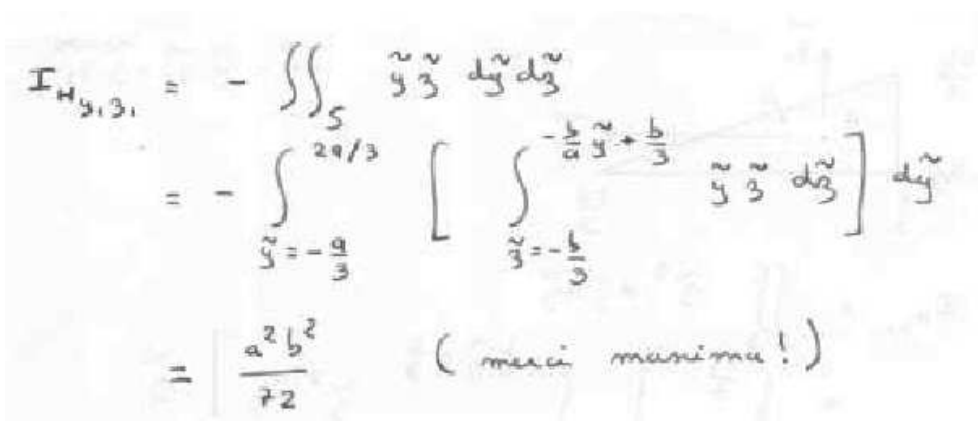 I_{H y_1 z_1} = - ∬_S ỹ z̃ dỹ dz̃
= - ∫_{ỹ = -a/3}^{2a/3} [ ∫_{z̃ = -b/3}^{-b/a ỹ + b/3} ỹ z̃ dz̃ ] dỹ
= a² b² / 72 ( merci maxima ! )